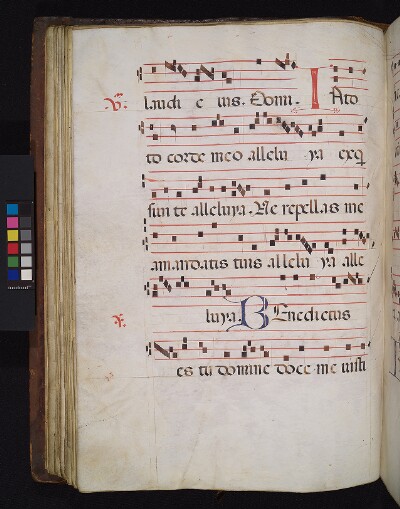 ℣. laudi e ius. Domi. I N to
to corde meo allelu ya exq
siui te alleluya. Ne repellas me
a mandatis tuis allelu ya alle
℣. luya. B Enedictus
es tu domine doce me iusti